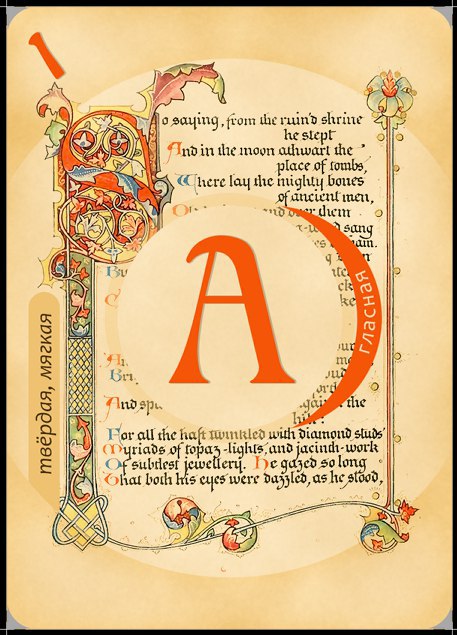 1
o saying, from the ruin'd shrine
he stept
And in the moon athwart the
place of tombs,
Where lay the mighty bones
of ancient men,
and over them
sang
твёрдая, мягкая
А
гласная
And
the
For all the haft twinkled with diamond studs
Myriads of topaz-lights, and jacinth-work
Of subtlest jewellery. He gazed so long
That both his eyes were dazzled, as he stood,